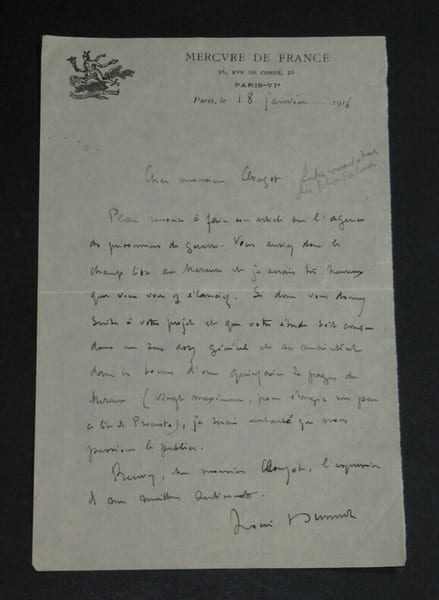 MERCVRE DE FRANCE
26, RVE DE CONDÉ, 26
PARIS-VIe
Paris, le 18 janvier 1916
Cher monsieur Clouzot
renonce à faire son article sur l'agence
des prisonniers de guerre. Vous auriez donc le
champ libre au Mercure et je serais très heureux
que vous vous y élanciez. Si donc vous donnez
suite à votre projet et que votre étude soit conçue
dans un sens assez général et se maintient
dans les bornes d'une quinzaine de pages du
Mercure (vingt maximum, pour élargir un peu
le lit de), je serais enchanté que nous
puissions la publier.
Recevez, cher monsieur Clouzot, l'expression
de mes meilleurs sentiments.
Louis Dumur